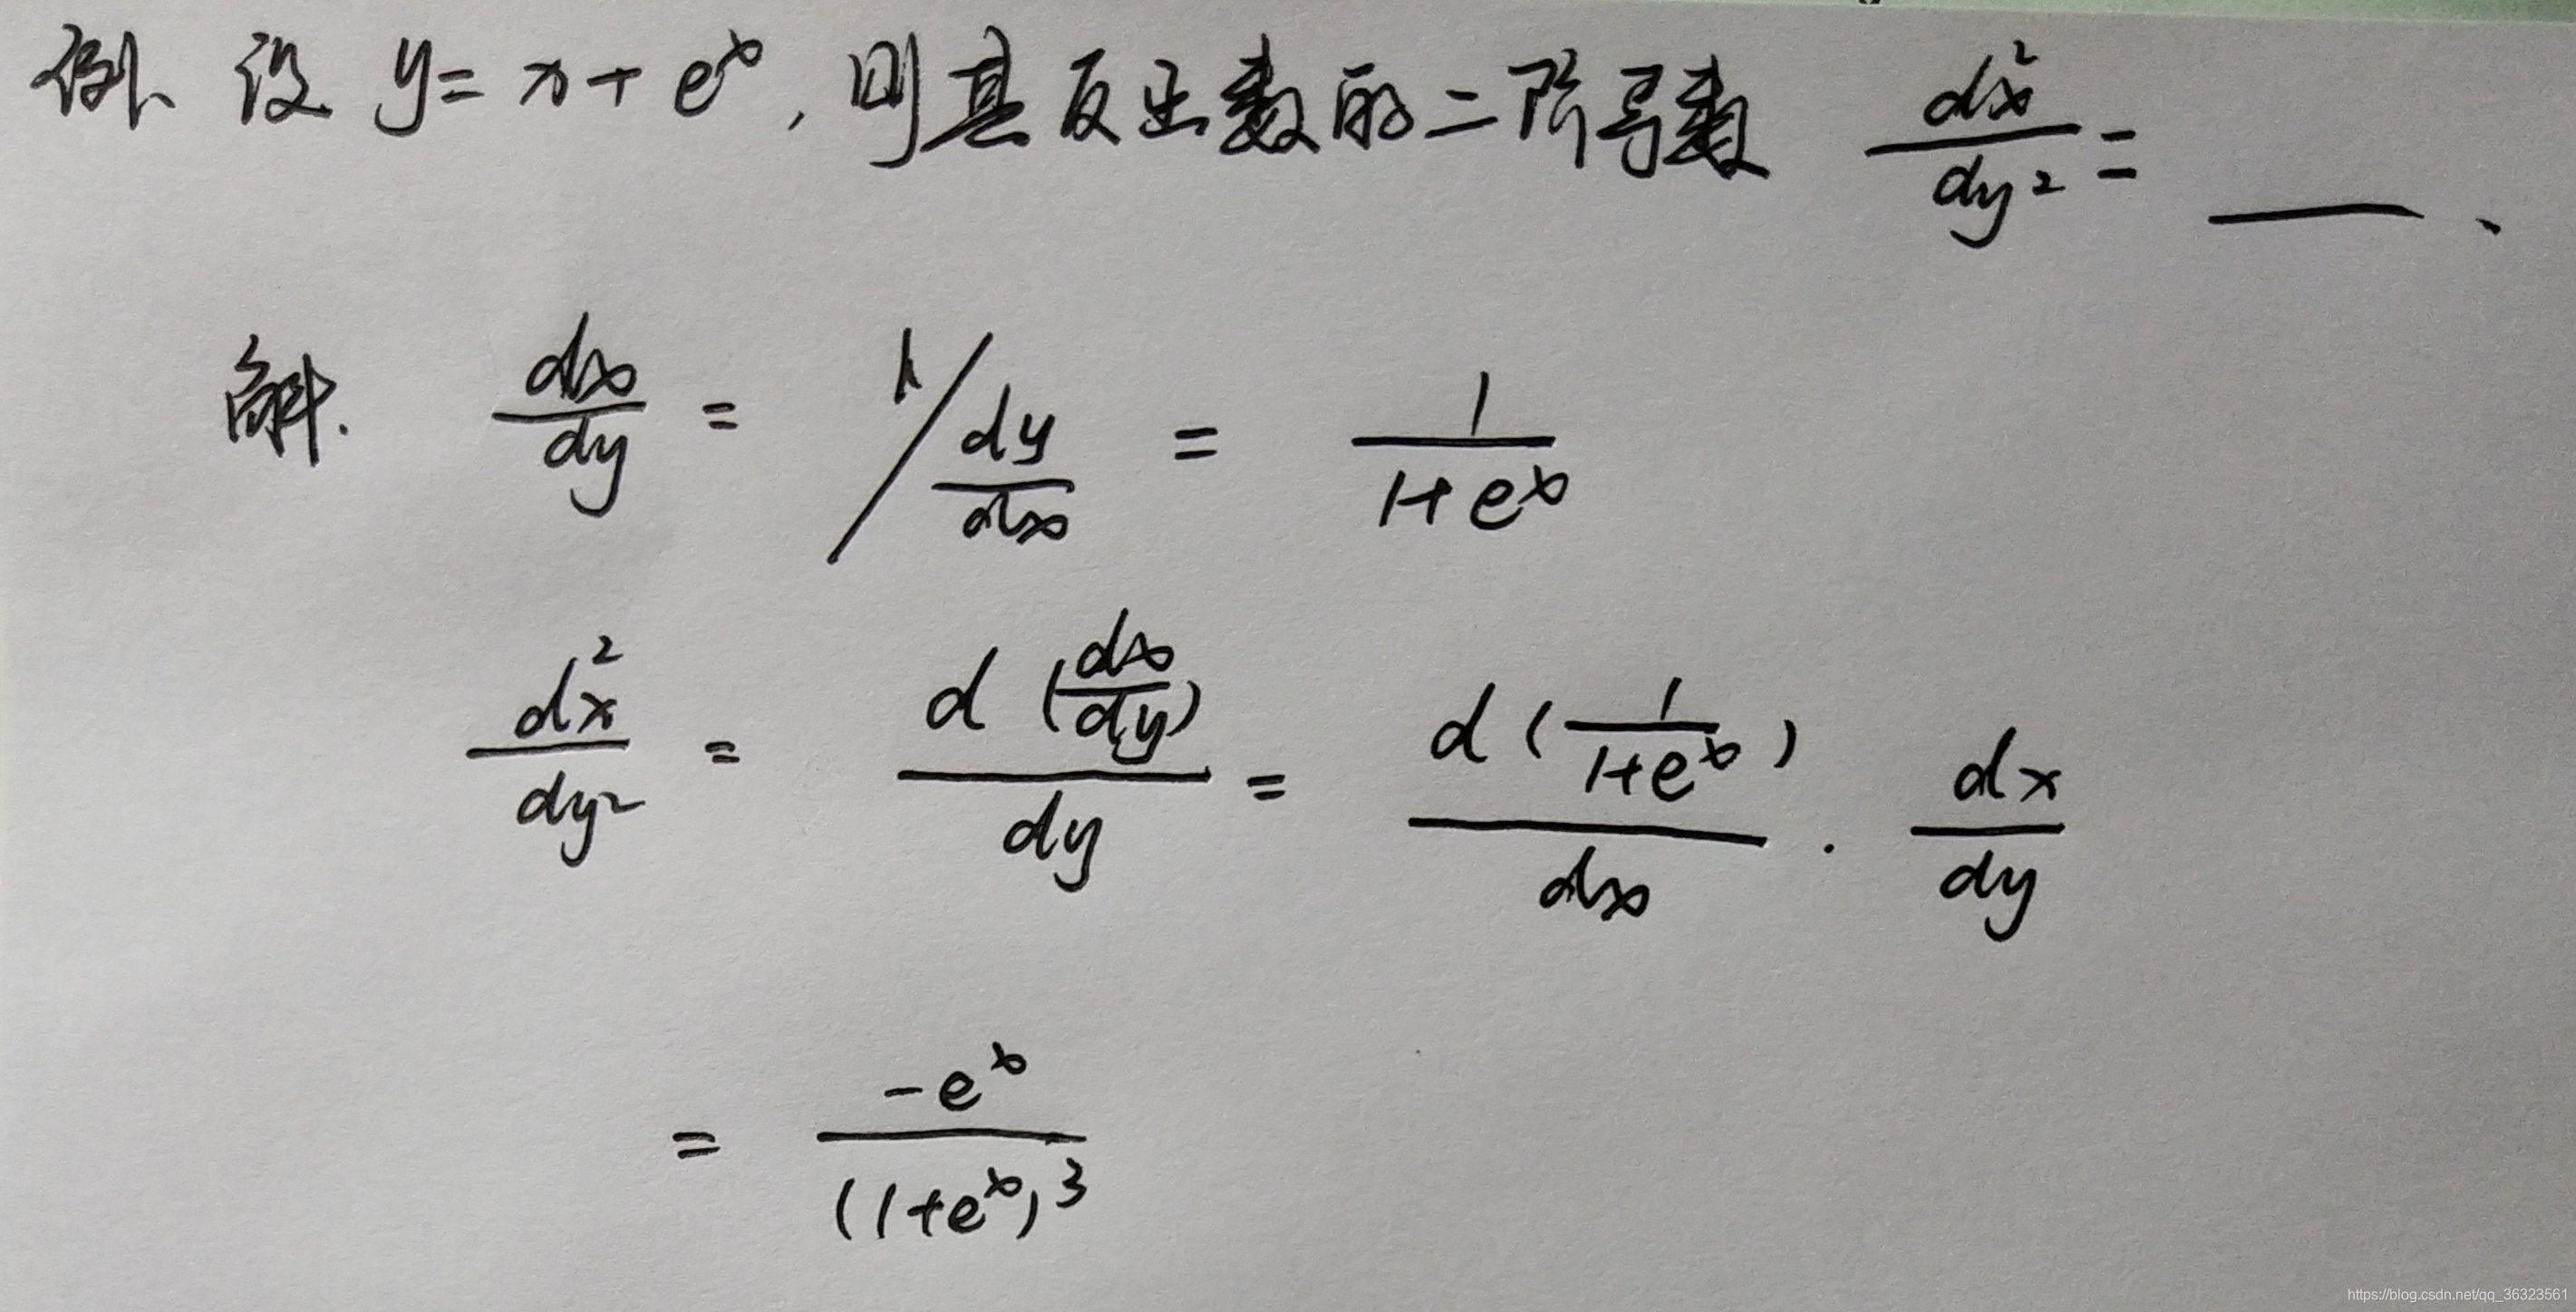 例、设 y = x + e^x, 则其反函数的二阶导数 \frac{dx^2}{dy^2} = ___.
解. \frac{dx}{dy} = 1/\frac{dy}{dx} = \frac{1}{1+e^x}
\frac{dx^2}{dy^2} = \frac{d(\frac{dx}{dy})}{dy} = \frac{d(\frac{1}{1+e^x})}{dx} · \frac{dx}{dy}
= \frac{-e^x}{(1+e^x)^3}
https://blog.csdn.net/qq_36323561